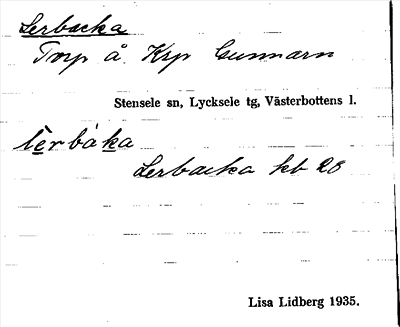 Lerbacka
Torp å. Krp Gunnarn
Stensele sn, Lycksele tg, Västerbottens l.
lerbáka
Lerbacka kb 28
Lisa Lidberg 1935.